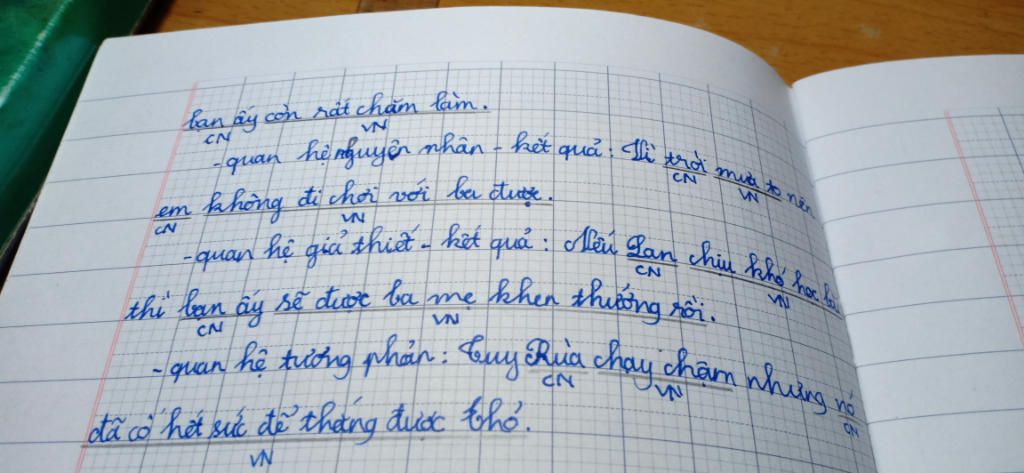 bạn ấy còn rất chăm làm.
CN VN
- quan hệ nguyên nhân - kết quả: Vì trời mưa to nên
CN VN
em không đi chơi với ba được.
CN VN
- quan hệ giả thiết - kết quả: Nếu Lan chịu khó học bài
CN VN
thì bạn ấy sẽ được ba mẹ khen thưởng rồi.
CN VN
- quan hệ tương phản: Tuy Rùa chạy chậm nhưng nó
CN VN CN
đã cố hết sức để thắng được thỏ.
VN